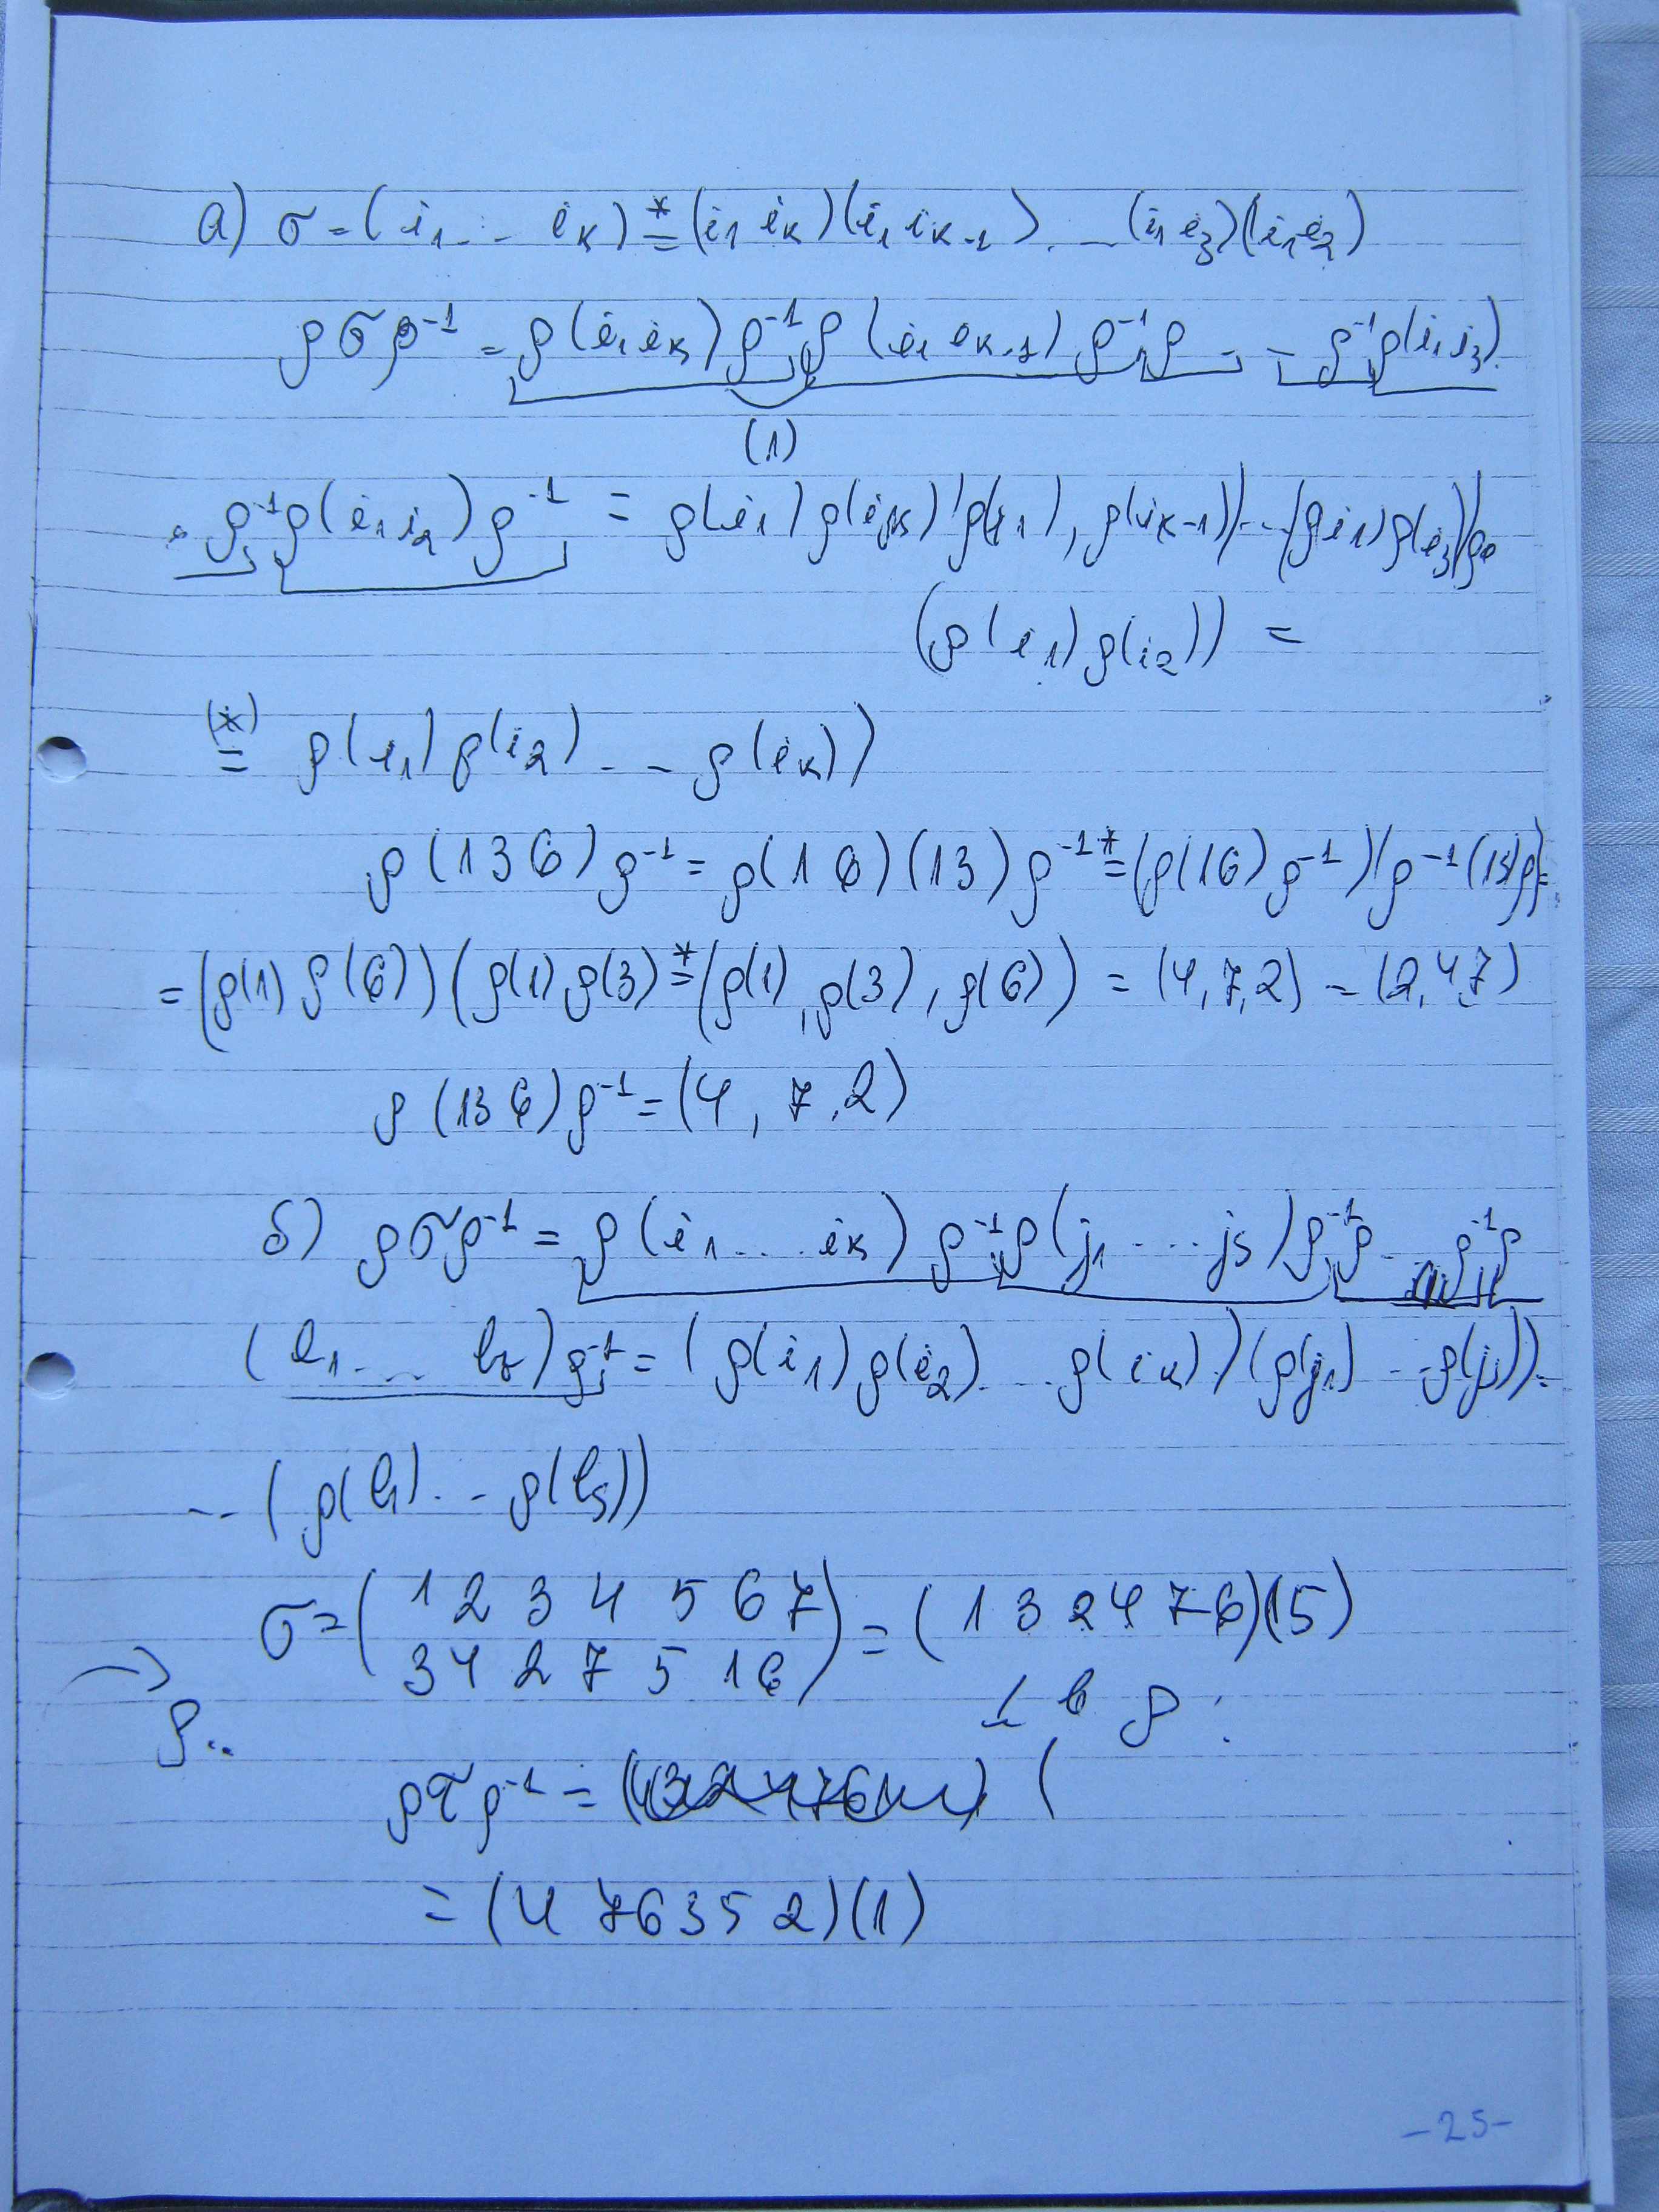 а) σ = (i₁ - - iₖ) *= (i₁ iₖ)(i₁ iₖ₋₁) . - (i₁ i₃)(i₁ i₂)
ρσρ⁻¹ = ρ(i₁ iₖ)ρ⁻¹ρ(i₁ iₖ₋₁)ρ⁻¹ρ - - ρ⁻¹ρ(i₁ i₃)
(1)
. ρ⁻¹ρ(i₁ i₂)ρ⁻¹ = ρ(i₁) ρ(iₖ)) (ρ(i₁), ρ(iₖ₋₁)) - - (ρ(i₁) ρ(i₃))
(ρ(i₁) ρ(i₂)) =
(*)= ρ(i₁) ρ(i₂) - - ρ(iₖ))
ρ(1 3 6)ρ⁻¹ = ρ(1 6)(1 3)ρ⁻¹ *= (ρ(16)ρ⁻¹)(ρ⁻¹(13)ρ) =
= (ρ(1) ρ(6))(ρ(1) ρ(3) *= (ρ(1), ρ(3), ρ(6)) = (4,7,2) - (2,4,7)
ρ(136)ρ⁻¹ = (4, 7, 2)
б) ρσρ⁻¹ = ρ(i₁ ... iₖ) ρ⁻¹ρ(j₁ ... jₛ)ρ⁻¹ρ - ρ⁻¹ρ
(l₁ ... lᵣ)ρ⁻¹ = (ρ(i₁) ρ(i₂) ... ρ(iₖ))(ρ(j₁) -- ρ(jₛ)).
-- (ρ(l₁) .. - ρ(lₛ))
σ = ( 1 2 3 4 5 6 7 ) = (1 3 2 4 7 6)(5)
3 4 2 7 5 1 6
1 в ρ :
ρ..
ρτρ⁻¹ = (
= (4 7 6 3 5 2)(1)
- 25 -